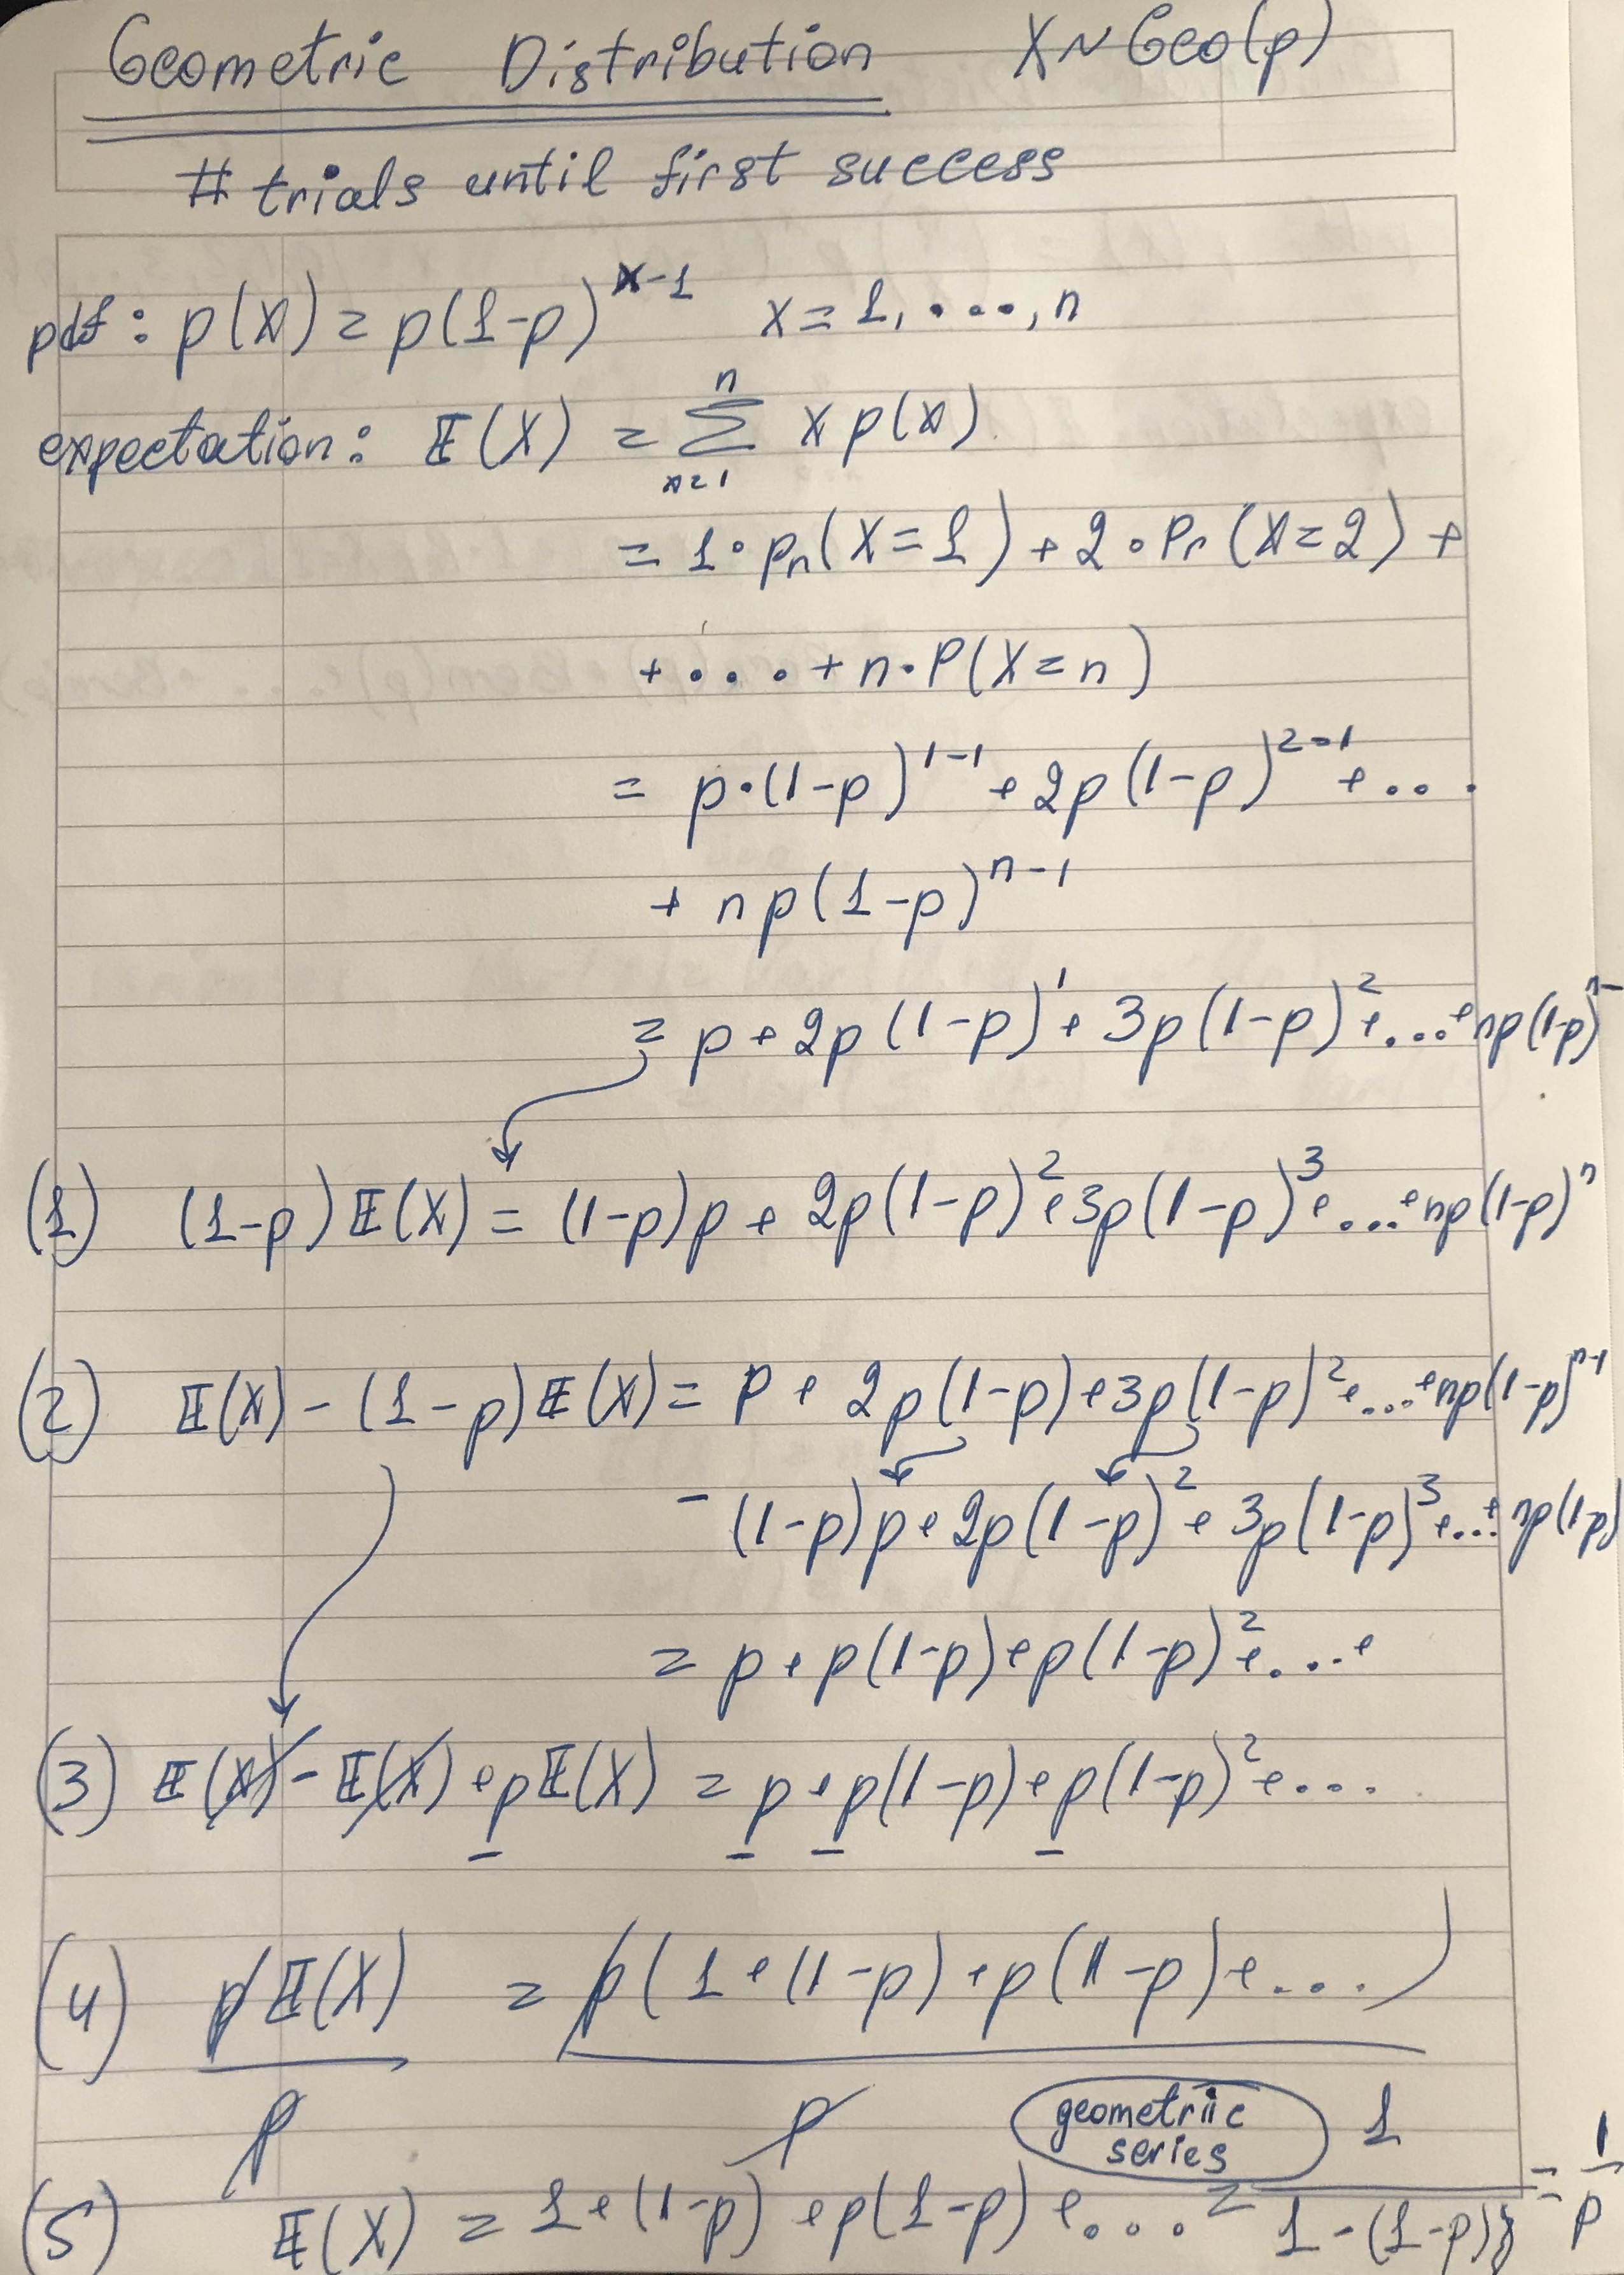 Geometric Distribution X ~ Geo(p)
# trials until first success
pdf: p(x) = p(1-p)^{x-1} x = 1, ...., n
expectation: 𝔼(X) = ∑_{x=1}^{n} x p(x)
= 1 · Pr(X=1) + 2 · Pr(X=2) +
+ .... + n · P(X=n)
= p·(1-p)^{1-1} + 2p(1-p)^{2-1} + ...
+ np(1-p)^{n-1}
= p + 2p(1-p)^1 + 3p(1-p)^2 + .... + np(1-p)^{n-
(1) (1-p)𝔼(X) = (1-p)p + 2p(1-p)^2 + 3p(1-p)^3 + ... + np(1-p)^n
(2) 𝔼(X) - (1-p)𝔼(X) = p + 2p(1-p) + 3p(1-p)^2 + ... + np(1-p)^{n-1}
- (1-p)p + 2p(1-p)^2 + 3p(1-p)^3 + ... + np(1-p)
= p + p(1-p) + p(1-p)^2 + .... +
(3) 𝔼(X) - 𝔼(X) + p𝔼(X) = p + p(1-p) + p(1-p)^2 + ....
(4) p𝔼(X) = p(1 + (1-p) + p(1-p) + ....)
p p geometriic
series 1
(5) 𝔼(X) = 1 + (1-p) + p(1-p) + .... = 1-(1-p) = 1/p